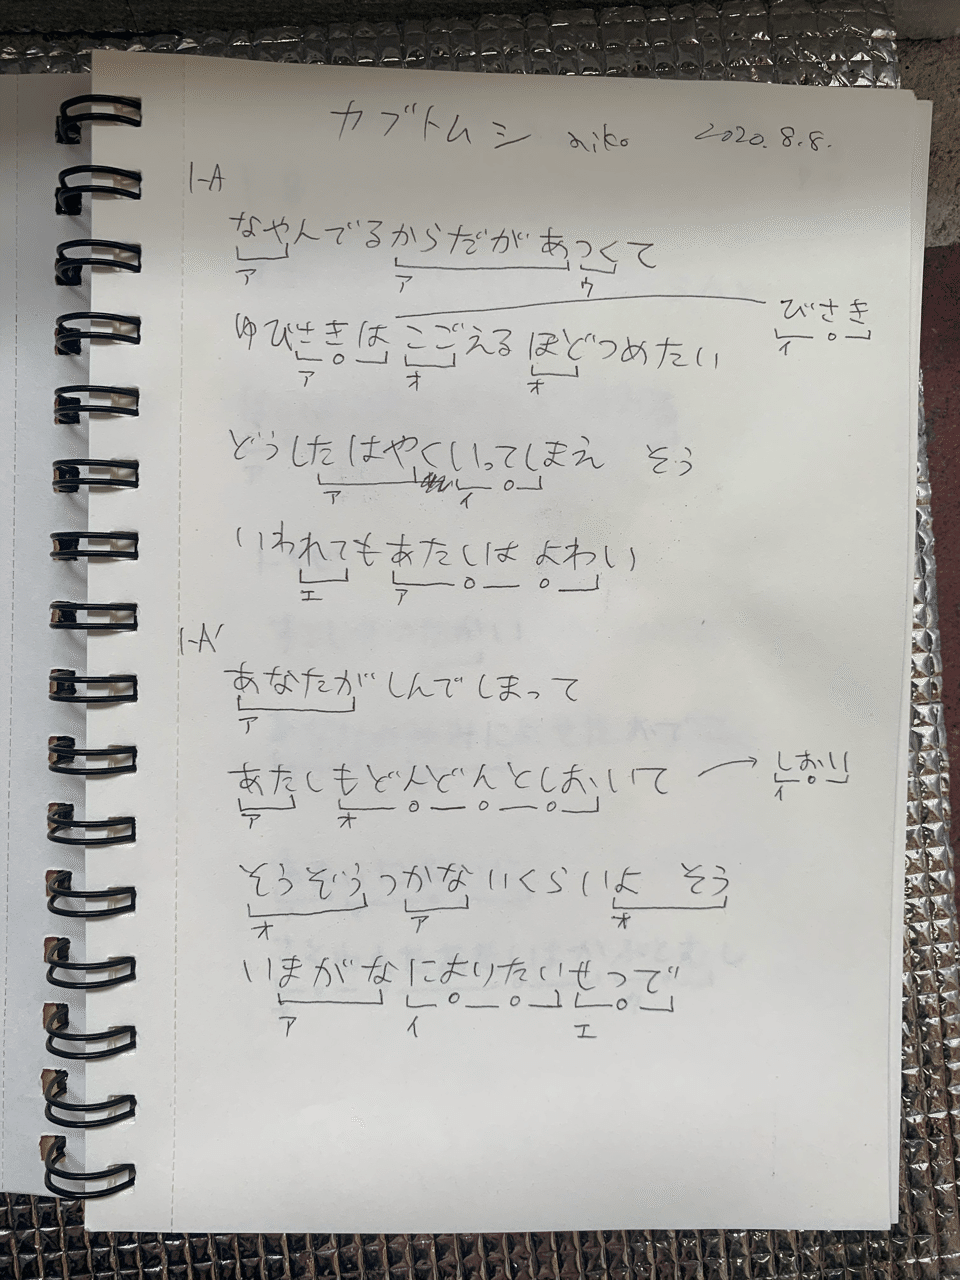 カブトムシ aiko 2020.8.8.
1-A
なやんでるからだがあつくて
ア ア ウ
ゆびさきはこごえるほどつめたい びさき
ア オ オ イ
どうしたはやくいってしまえ そう
ア イ
いわれてもあたしはよわい
エ ア
1-A'
あなたがしんでしまって
ア
あたしもどんどんとしおいて → しおい
ア オ イ
そうぞうつかないくらいよ そう
オ ア オ
いまがなによりたいせつで
ア イ エ